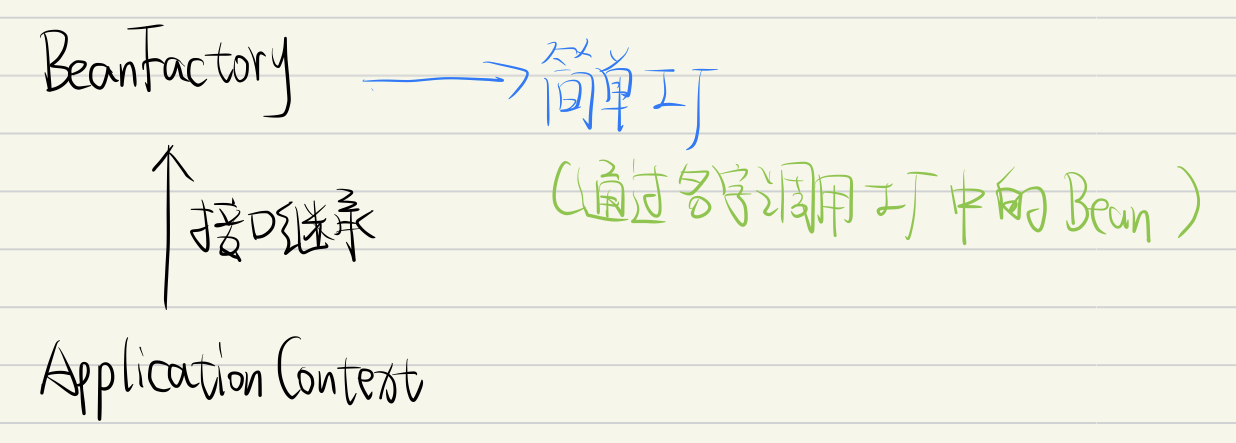 BeanFactory
简单工厂
(通过名字调用工厂中的Bean)
接口继承
ApplicationContext